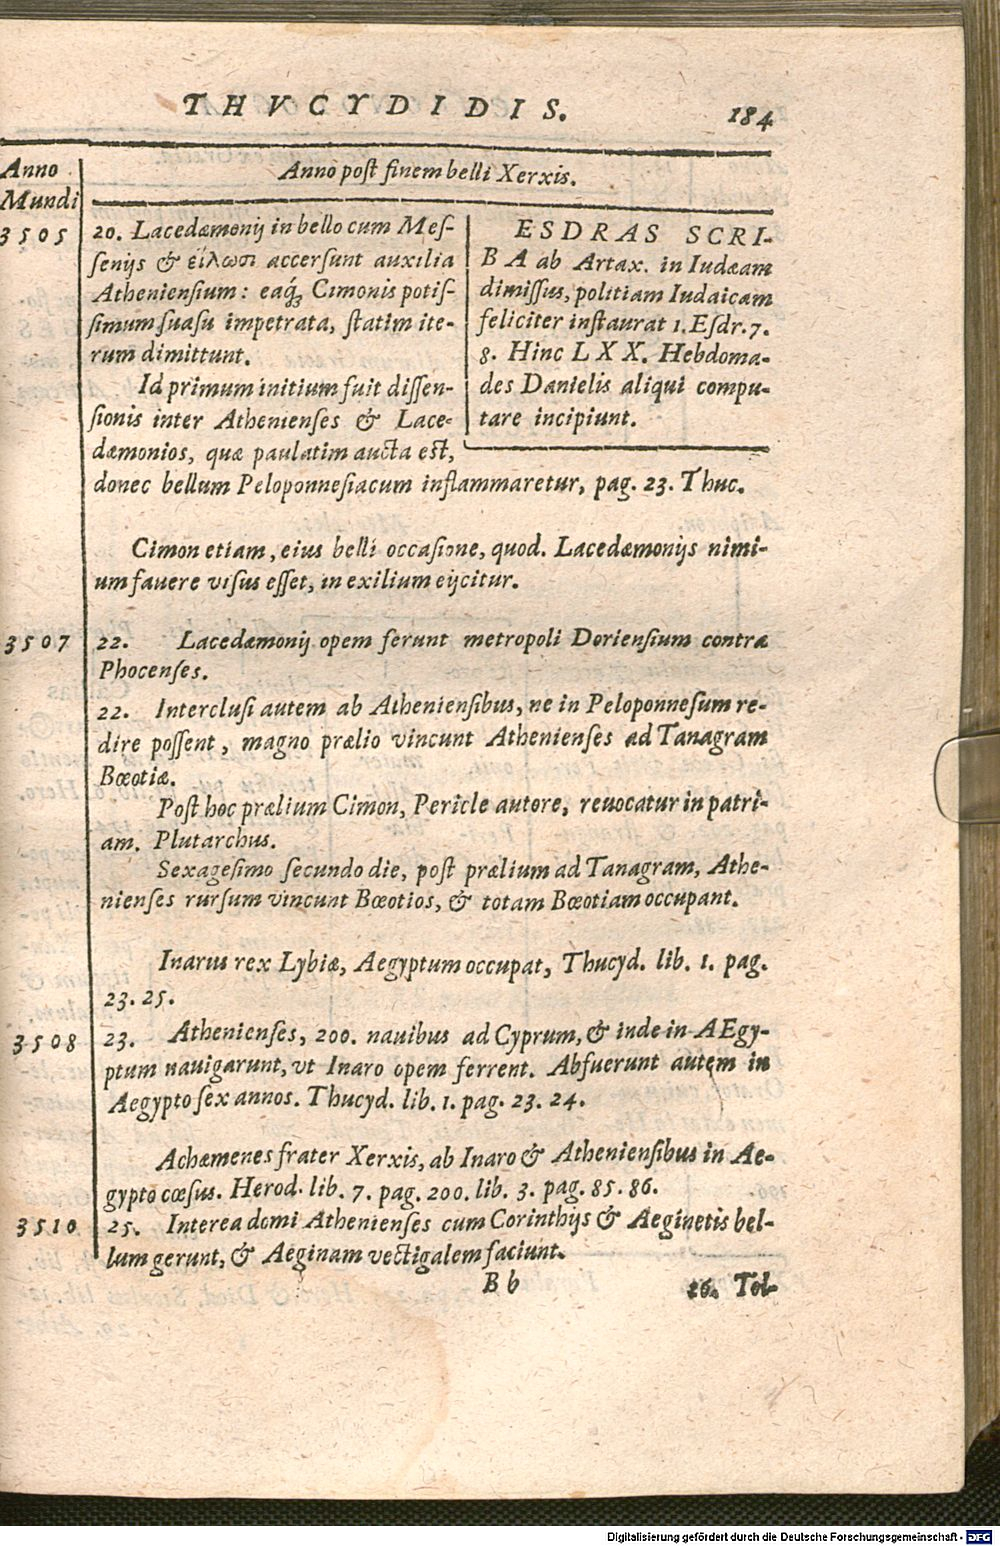 THVCYDIDIS.
184
Anno
Mundi
Anno post finem belli Xerxis.
3505
20. Lacedæmonij in bello cum Mes-
senijs & εἵλωσι accersunt auxilia
Atheniensium: eaq́; Cimonis potis-
simum suasu impetrata, statim ite-
rum dimittunt.
Id primum initium fuit dissen-
sionis inter Athenienses & Lace-
dæmonios, quæ paulatim aucta est,
donec bellum Peloponnesiacum inflammaretur, pag. 23. Thuc.
ESDRAS SCRI-
BA ab Artax. in Iudæam
dimissus, politiam Iudaicam
feliciter instaurat 1. Esdr. 7.
8. Hinc LXX. Hebdoma-
des Danielis aliqui compu-
tare incipiunt.
Cimon etiam, eius belli occasione, quod. Lacedæmonijs nimi-
um fauere visus esset, in exilium eijcitur.
3507
22. Lacedæmonij opem ferunt metropoli Doriensium contra
Phocenses.
22. Interclusi autem ab Atheniensibus, ne in Peloponnesum re-
dire possent, magno prælio vincunt Athenienses ad Tanagram
Bœotiæ.
Post hoc prælium Cimon, Pericle autore, reuocatur in patri-
am. Plutarchus.
Sexagesimo secundo die, post prælium ad Tanagram, Athe-
nienses rursum vincunt Bœotios, & totam Bœotiam occupant.
Inarus rex Lybiæ, Aegyptum occupat, Thucyd. lib. 1. pag.
23. 25.
3508
23. Athenienses, 200. nauibus ad Cyprum, & inde in AEgy-
ptum nauigarunt, vt Inaro opem ferrent. Abfuerunt autem in
Aegypto sex annos. Thucyd. lib. 1. pag. 23. 24.
Achæmenes frater Xerxis, ab Inaro & Atheniensibus in Ae-
gypto cœsus. Herod. lib. 7. pag. 200. lib. 3. pag. 85. 86.
3510
25. Interea domi Athenienses cum Corinthijs & Aeginetis bel-
lum gerunt, & Aeginam vectigalem faciunt.
Bb
26. Tol-
Digitalisierung gefördert durch die Deutsche Forschungsgemeinschaft - DFG